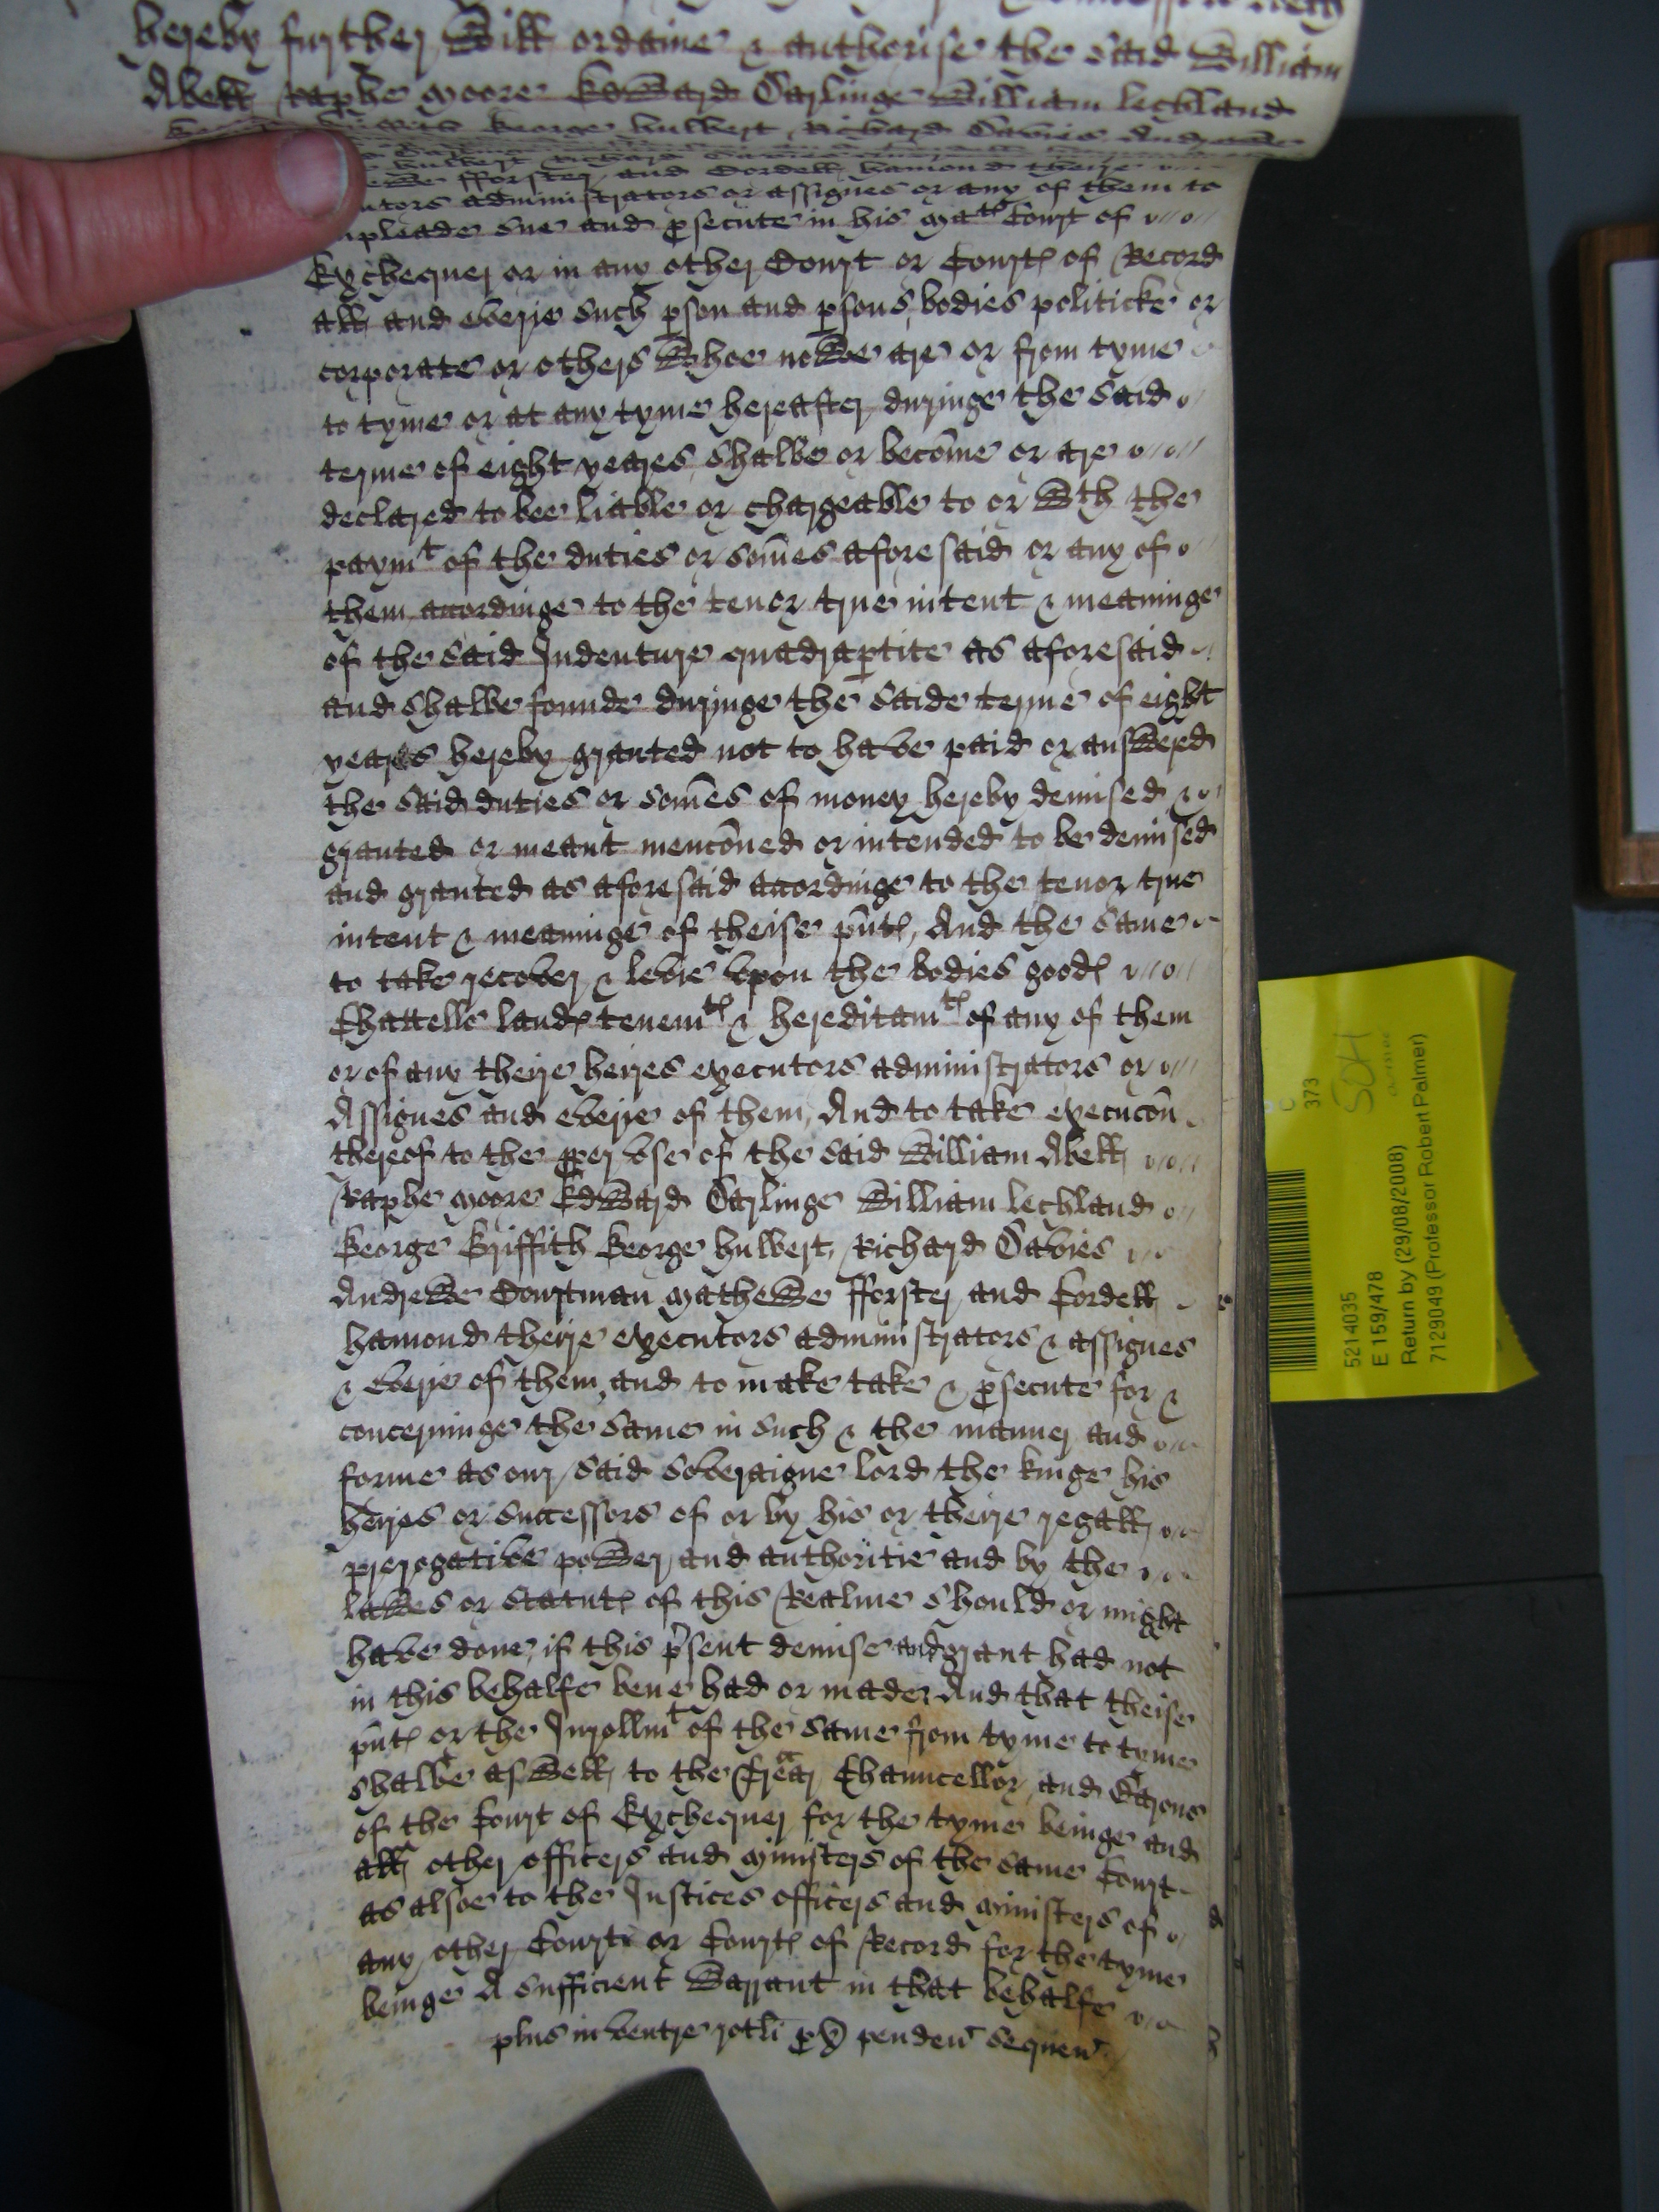 hereby further Will ordaine & authorise the said William
Abell Raphe Moore Edward Carlinge William Lechland
George Griffith George hulbert Richard Davies Andrewe
hulbert Richard Davies
fforster and Cordell hamond theire
administrators or assignes or any of them to
impleade sue and psecute in his Matꝭ Court of
Exchequer or in any other Court or Courtꝭ of Record
all and everie such pson and psons bodies politicke or
corporate or others Whoe nowe are or from tyme
to tyme or at any tyme hereafter duringe the said
terme of eight yeares shalbe or become or are
declared to bee liable or chargeable to or Wth the
paymt of the duties or somes aforesaid or any of
them accordinge to the tenor true intent & meaninge
of the said Indenture quadraptite as aforesaid
and shalbe founde duringe the saide terme of eight
yeares hereby granted not to have paid or answered
the said duties or somes of money hereby demised &
granted or meant menconed or intended to be demised
and granted as aforesaid accordinge to the tenor true
intent & meaninge of theise pntꝭ, And the same
to take recover & levie vpon the bodies goodꝭ
Chattells landꝭ tenemtꝭ & hereditamtꝭ of any of them
or of any theire heires executors administrators or
Assignes and everie of them, And to take execucon
thereof to the pper vse of the said William Abell
Raphe Moore Edward Carlinge William Lechland
George Griffith George hulbert, Richard Davies
Andrewe Courtman Mathewe fforster and Cordell
hamond theire executors administrators & assignes
& everie of them, and to make take & psecute for &
concerninge the same in such & the manner and
forme as our said soveraigne lord the kinge his
heires or successors of or by his or theire regall
prerogative power and authoritie and by the
lawes or statutꝭ of this Realme should or might
have done, if this psent demise and grant had not
in this behalfe bene had or made, And that theise
pntꝭ or the Inrollmt of the same from tyme to tyme
shalbe aswell to the Trer Chauncellor and Barons
of the Court of Exchequer for the tyme beinge and
all other officers and Ministers of the same Court
as alsoe to the Justices officers and Ministers of
any other Courte or Courtꝭ of Record for the tyme
beinge A sufficient Warrant in that behalfe
plus in ventre rotli px penden sequen
C
373
SOH
5214035
E 159/478
Return by (29/08/2008)
7129049 (Professor Robert Palmer)